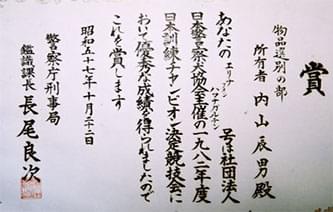 賞
物品選別の部
所有者 内山辰男殿
あなたの 号は社団法人
日本警察犬協会主催の一九八二年度
日本訓練チャンピオン決定競技会に
おいて優秀な成績を得られましたので
これを賞します
昭和五十七年十月
警察庁刑事局
鑑識課長 長尾良次